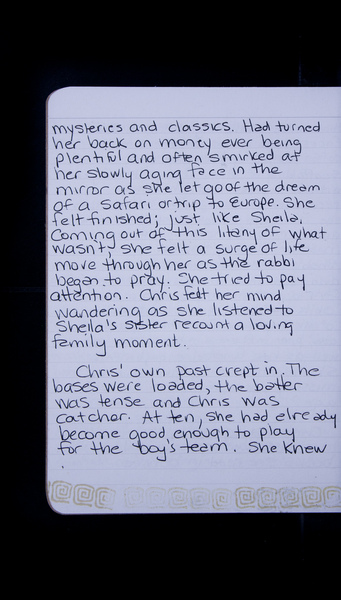 mysteries and classics. Had turned
her back on money ever being
plentiful and often smirked at
her slowly aging face in the
mirror as she let go of the dream
of a Safari or trip to Europe. She
felt finished; just like Sheila.
Coming out of this litany of what
wasn't, she felt a surge of life
move through her as the rabbi
began to pray. She tried to pay
attention. Chris felt her mind
wandering as she listened to
Sheila's sister recount a loving
family moment.
Chris' own past crept in. The
bases were loaded, the batter
was tense and Chris was
catcher. At ten, she had already
become good enough to play
for the boy's team. She knew